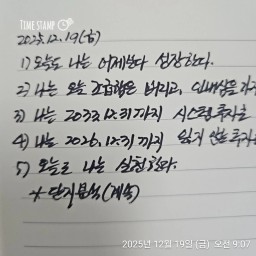 TIME STAMP
2025.12.19(금)
1) 오늘도 나는 어제보다 성장한다.
2) 나는 오늘 조급함은 버리고, 인내심을
3) 나는 2033.12.31까지 시스템 투자로
4) 나는 2026.12.31까지 잃지 않는 투자
5) 오늘도 나는 실천한다.
* 단지분석(계속)
2025년 12월 19일 (금) 오전 9:07